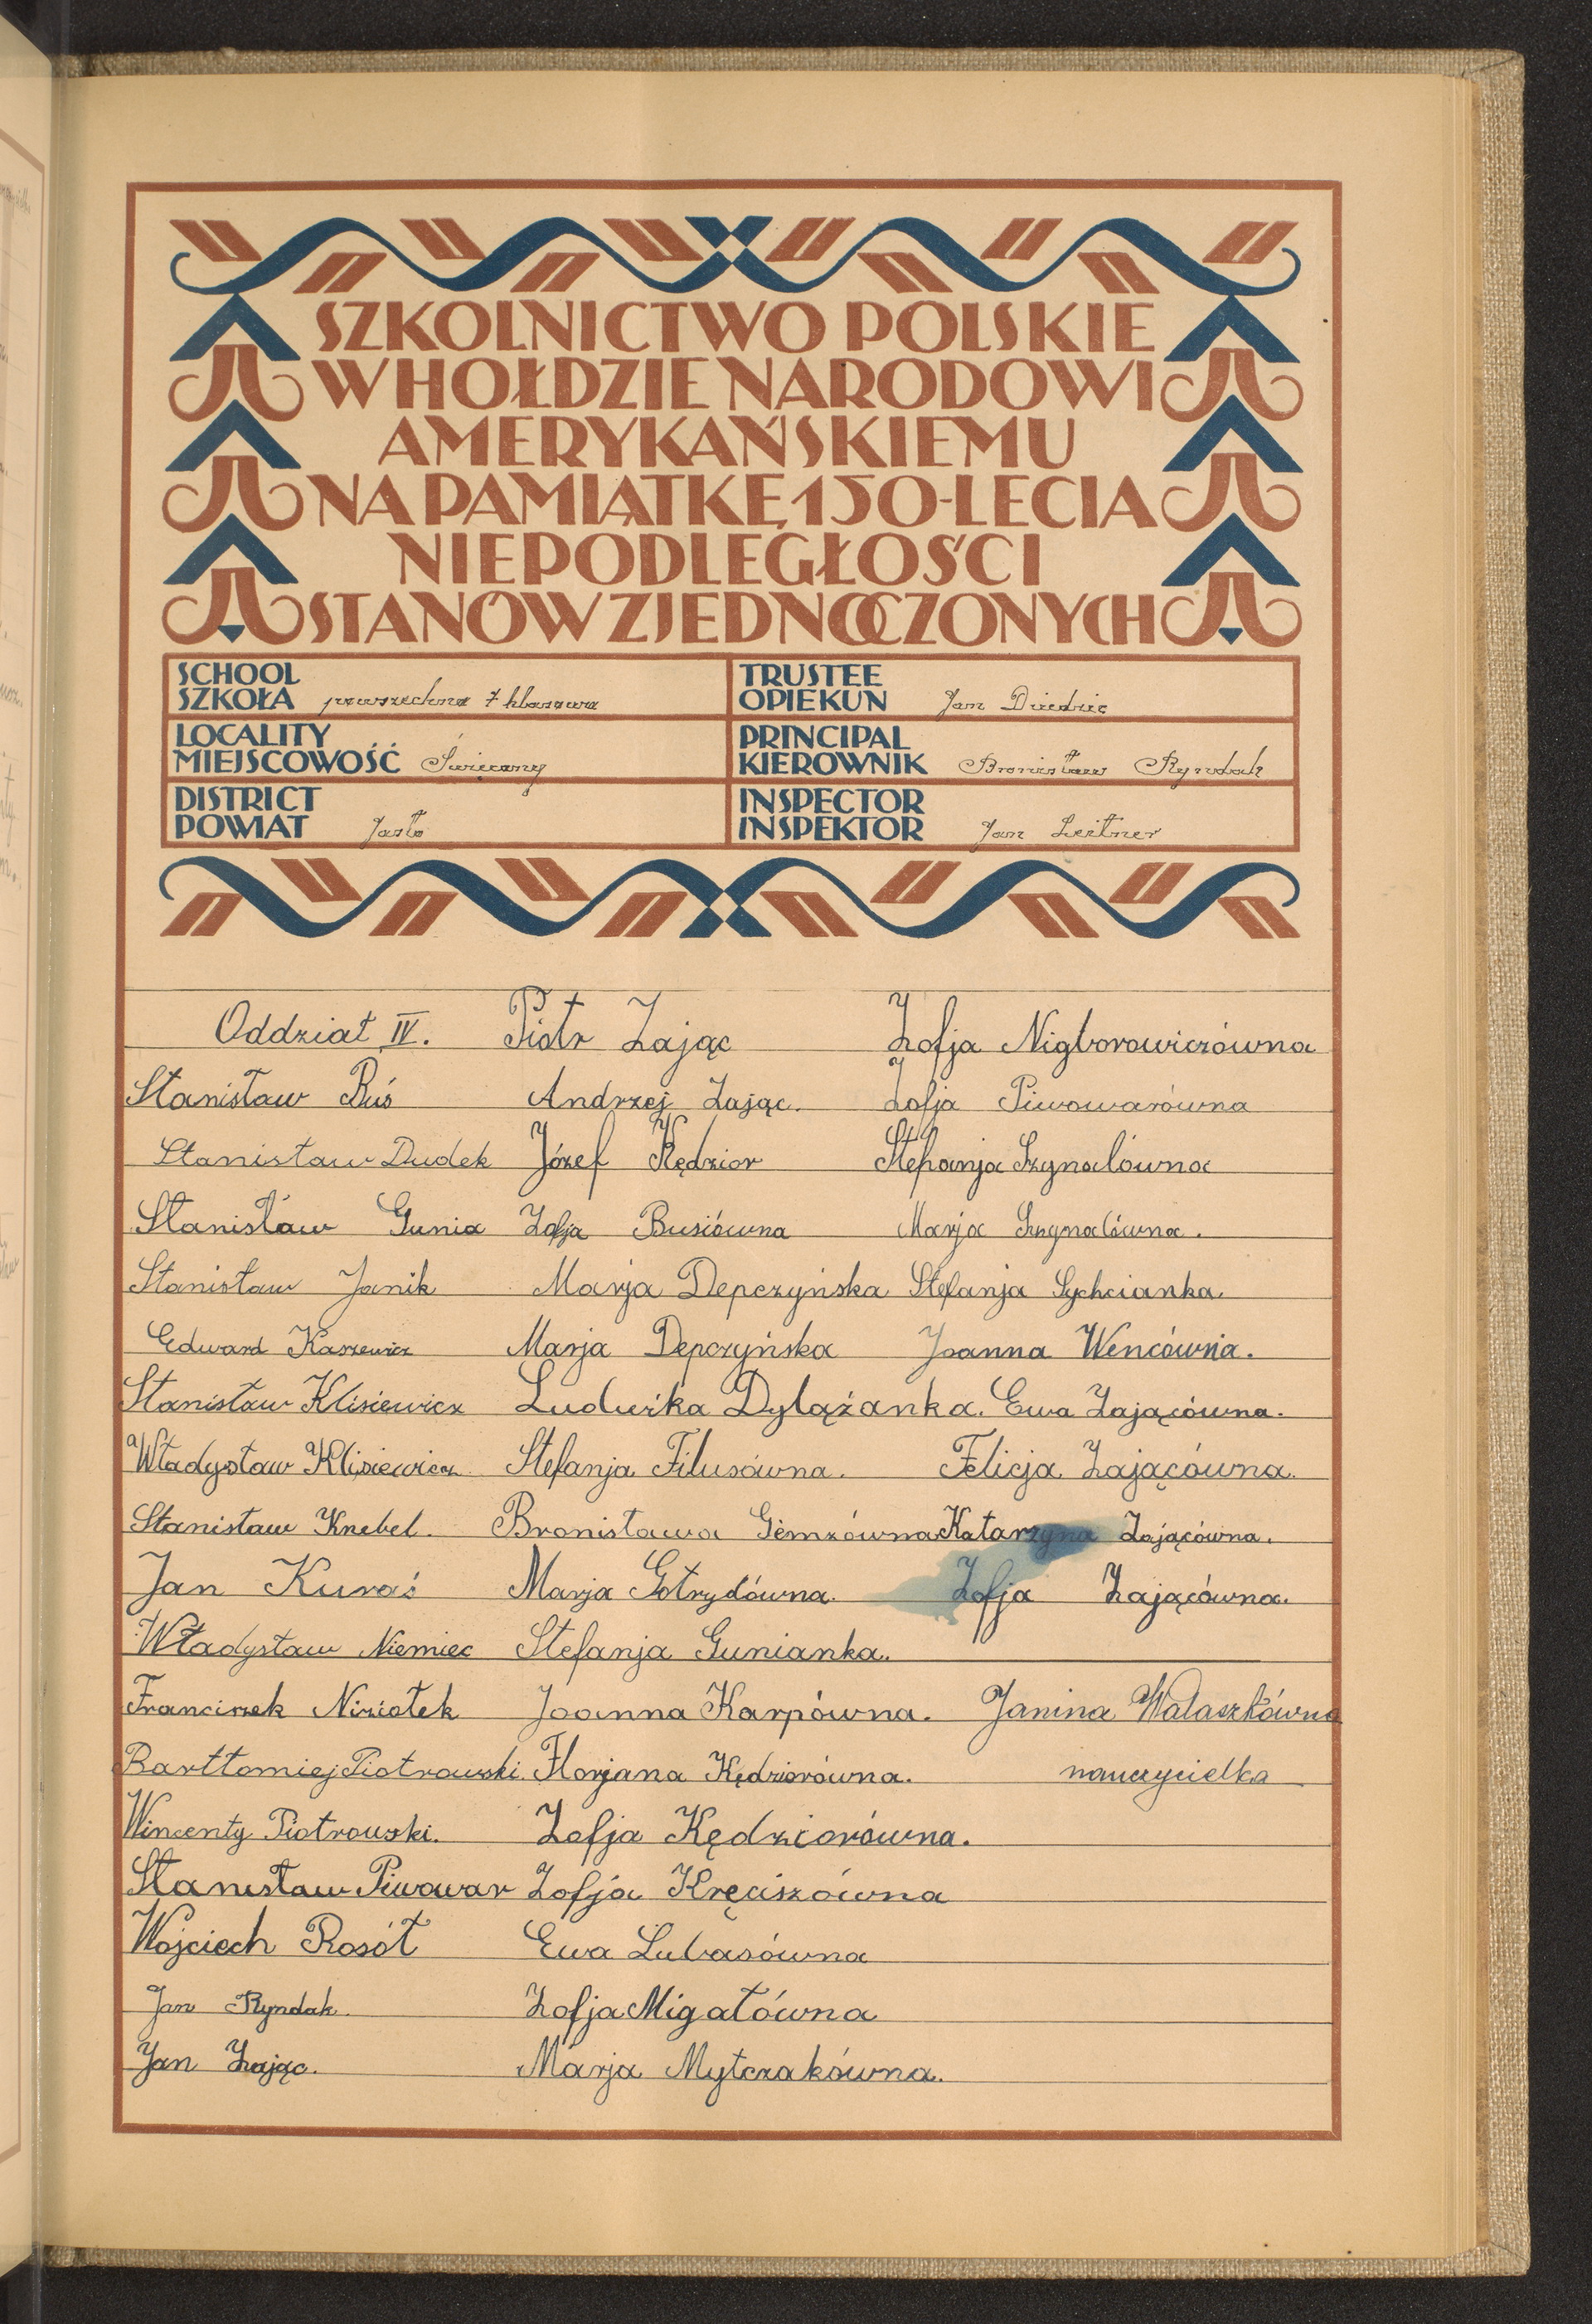 SZKOLNICTWO POLSKIE
W HOŁDZIE NARODOWI
AMERYKAŃSKIEMU
NA PAMIĄTKĘ 150-LECIA
NIEPODLEGŁOŚCI
STANÓW ZJEDNOCZONYCH
SCHOOL
SZKOŁA powszechna 7 klasowa
TRUSTEE
OPIEKUN Jan Dziedzic
LOCALITY
MIEJSCOWOŚĆ Święcany
PRINCIPAL
KIEROWNIK Bronisław Ryndak
DISTRICT
POWIAT Jasło
INSPECTOR
INSPEKTOR Jan Leitner
Oddział IV. Piotr Zając Zofja Nigborowiczówna
Stanisław Buś Andrzej Zając. Zofja Piwowarówna
Stanisław Dudek Józef Kędzior Stefanja Szynalówna
Stanisław Gunia Zofja Busiówna Marja Szynalówna.
Stanisław Janik Marja Depczyńska Stefanja Sychcianka.
Edward Kaszewicz Marja Depczyńska Joanna Wencówna.
Stanisław Klisiewicz Ludwika Dylążanka. Ewa Zającówna.
Władysław Klisiewicz Stefanja Filusówna. Felicja Zającówna.
Stanisław Knebel. Bronisława Gemzówna Katarzyna Zającówna.
Jan Kuraś Marja Gotrydówna. Zofja Zającówna.
Władysław Niemiec Stefanja Gunianka.
Franciszek Niziołek Joanna Karpówna. Janina Walaszkówna
Barttomiej Piotrowski. Florjana Kędziorówna. nauczycielka
Wincenty Piotrowski. Zofja Kędziorówna.
Stanisław Piwowar Zofja Kręciszówna
Wojciech Rosół Ewa Lubasówna
Jan Ryndak. Zofja Migałówna
Jan Zając. Marja Mytczakówna.